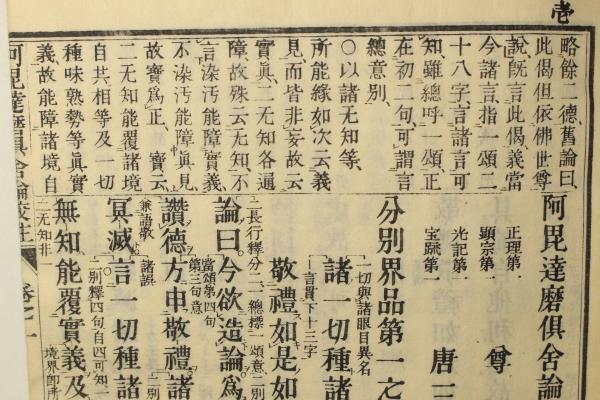 壱
略餘二德舊論曰
此偈但依佛世尊
說既言此偈義當
今諸言指一頌二
十八字言諸言可
知雖總呼一頌正
在初二句可謂言
總意別
○以諸无知等
所能緣如次云義
見而皆非妄故云
實眞二无知各通
障故殊云无知不
言染汚能障實義
不染汚能障眞見
故實爲正 寶云
二无知能覆諸境
自共相等及一切
種味熟勢等眞實
義故能障諸境自
阿毘達磨俱舍論校註 卷之一
阿毘達磨俱舍論
正理第一
顯宗第一
光記第一
寶疏第一
尊
唐三
分別界品第一之
一切與諸眼目異名
諸一切種諸
言貫下十三字
敬禮如是如
長行釋分二、總標一頌意、二別
論曰今欲造論爲
當頌第四句
第三句意
讚德方申敬禮諸
兼語敬
諸誤
冥滅言一切種諸
一別釋四句自四可知一
無知能覆實義及
二无知非一
境界卽所